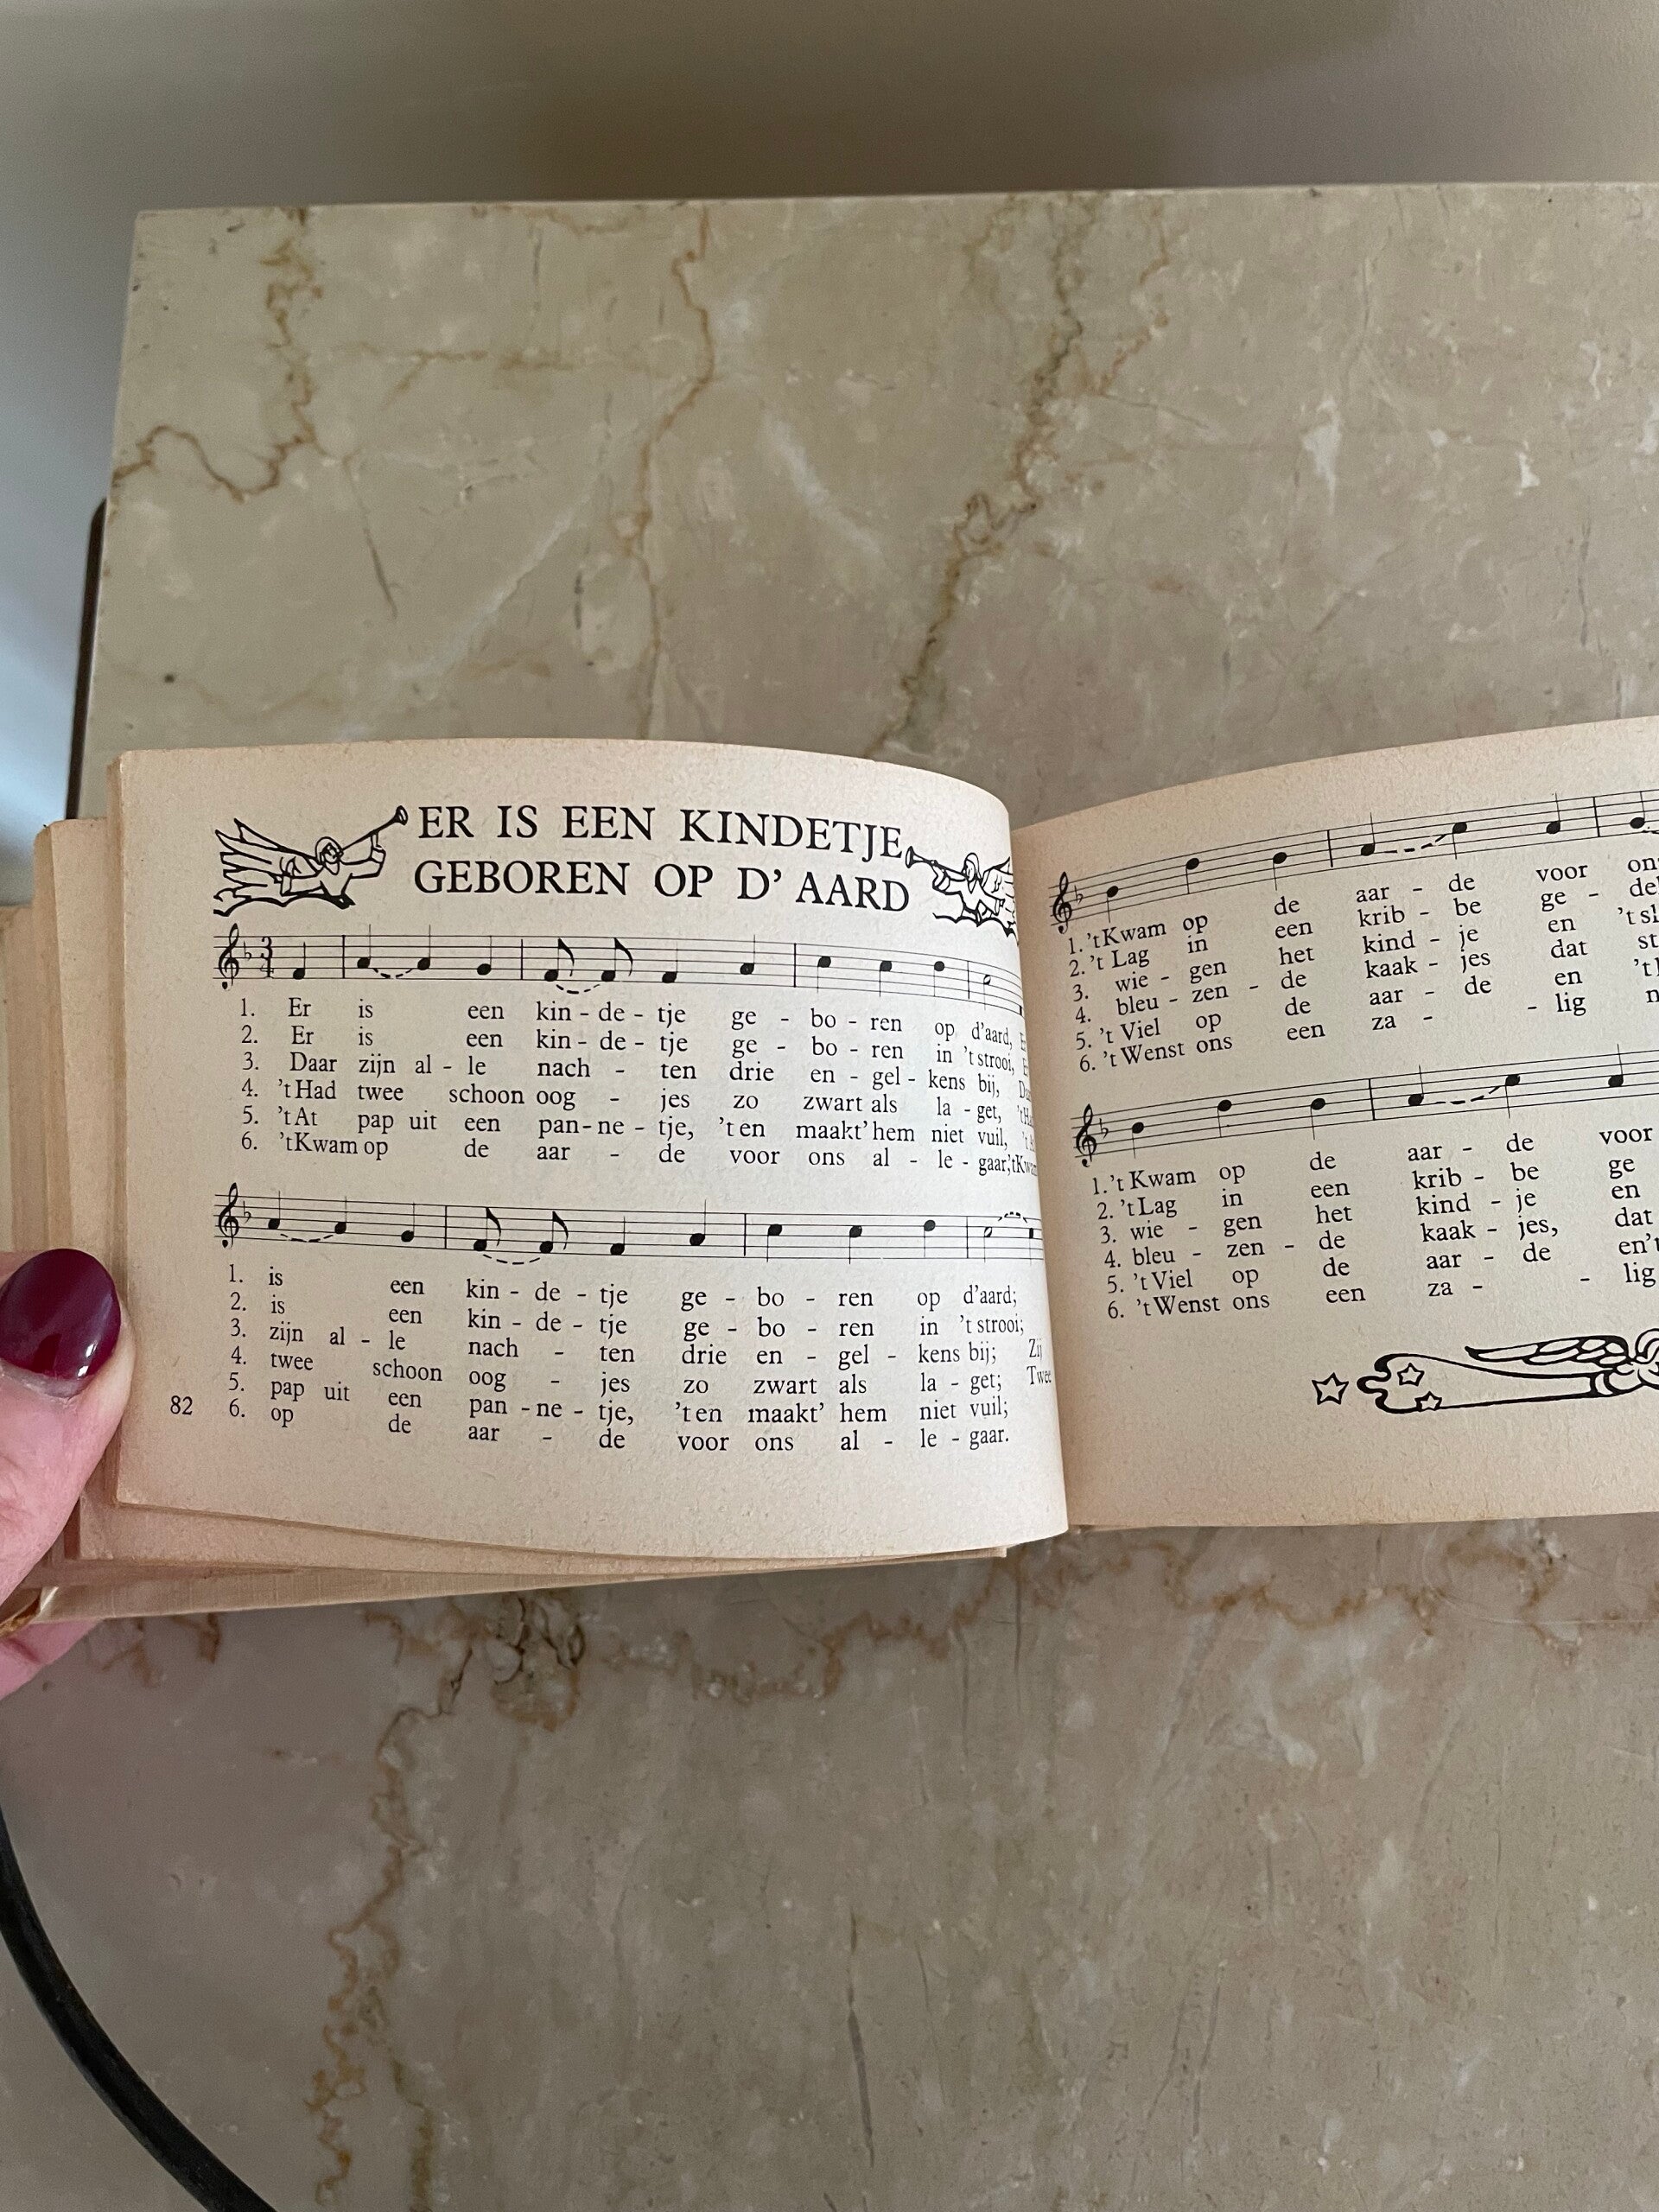 ER IS EEN KINDETJE
GEBOREN OP D' AARD
1. Er is een kin - de - tje ge - bo - ren op d'aard,
2. Er is een kin - de - tje ge - bo - ren in 't strooi,
3. Daar zijn al - le nach - ten drie en - gel - kens bij,
4. 't Had twee schoon oog - jes zo zwart als la - get,
5. 't At pap uit een pan - ne - tje, 't en maakt' hem niet vuil,
6. 't Kwam op de aar - de voor ons al - le - gaar,
1. is een kin - de - tje ge - bo - ren op d'aard;
2. is een kin - de - tje ge - bo - ren in 't strooi;
3. zijn al - le nach - ten drie en - gel - kens bij; Zij
4. twee schoon oog - jes zo zwart als la - get; Twee
5. pap uit een pan - ne - tje, 't en maakt' hem niet vuil;
6. op de aar - de voor ons al - le - gaar.
82
1. 't Kwam op de aar - de voor
2. 't Lag in een krib - be ge -
3. wie - gen het kind - je en
4. bleu - zen - de kaak - jes dat
5. 't Viel op de aar - de en
6. 't Wenst ons een za - - lig
1. 't Kwam op de aar - de voor
2. 't Lag in een krib - be ge
3. wie - gen het kind - je en
4. bleu - zen - de kaak - jes, dat
5. 't Viel op de aar - de en
6. 't Wenst ons een za - - lig